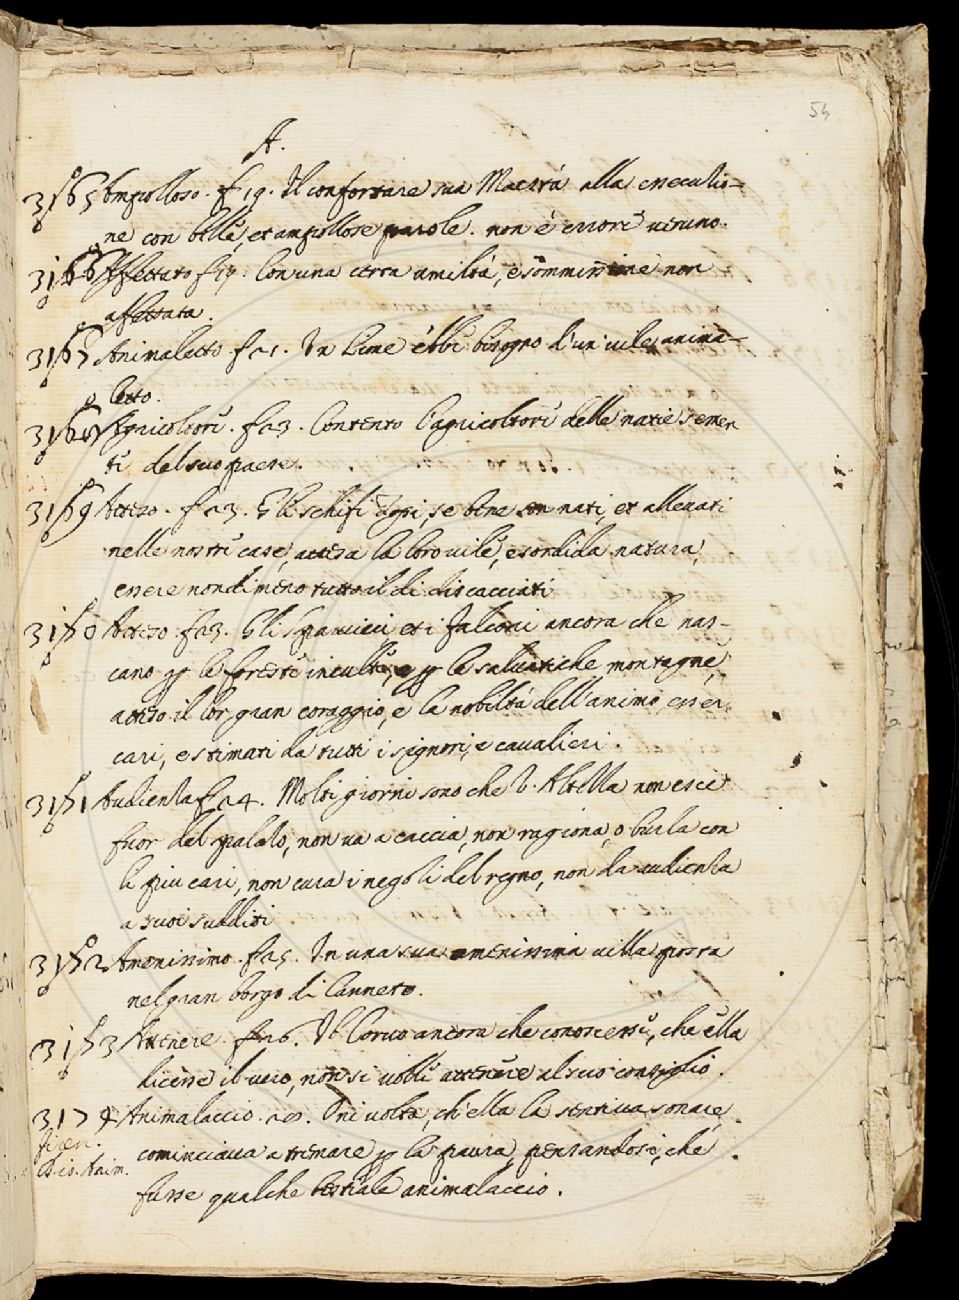 54
A.
3165 Ampolloso. f 19. Il confortare sua Maestà alla essecutio=
ne con belle, et ampollose parole. non è errore veruno.
3166 Affettato f 19. Con una certa umiltà, e sommissione non
affettata.
3167 Animaletto f 21. In Lime ebbi bisogno d'un vile anima=
letto.
3168 Agricoltori. f 23. Contento l'agricoltore delle natie semen
ti del suo paese.
3169 Atteso. f 23. Gli schifi topi, se bene son nati, et allevati
nelle nostre case, attesa la loro vile, e sordida natura,
essere nondimeno tutto il dì discacciati
3170 Atteso f 23. Gli Sparvieri et i Falconi ancora che nas-
cano p le foreste inculte, e p le salvatiche montagne,
atteso il lor gran coraggio, e la nobiltà dell'animo esser
cari, e stimati da tutti i signori, e cavalieri
3171 Audienza f 24. Molti giorni sono che V. Altezza non esce
fuor del palazo, non va a caccia, non ragiona, o burla con
li piu cari, non cura i negozi del regno, non da audienza
a suoi sudditi
3172 Amenissimo. f 25. In una sua amenissima villa posta
nel gran borgo di Canneto.
3173 Attenere. f 26. Il Corvo ancora che conoscesse, che ella
dicesse il vero, non si volle attenere al suo consiglio.
3174 Animalaccio. Ogni volta, ch'ella la sentiva sonare,
Firen.
Dis. Anim.
cominciava a tremare p la paura, pensandosi, che
fusse qualche bestiale animalaccio.